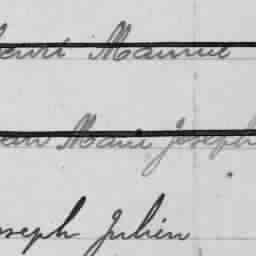 Henri Maurice
Jean Marie Joseph
Joseph Julien